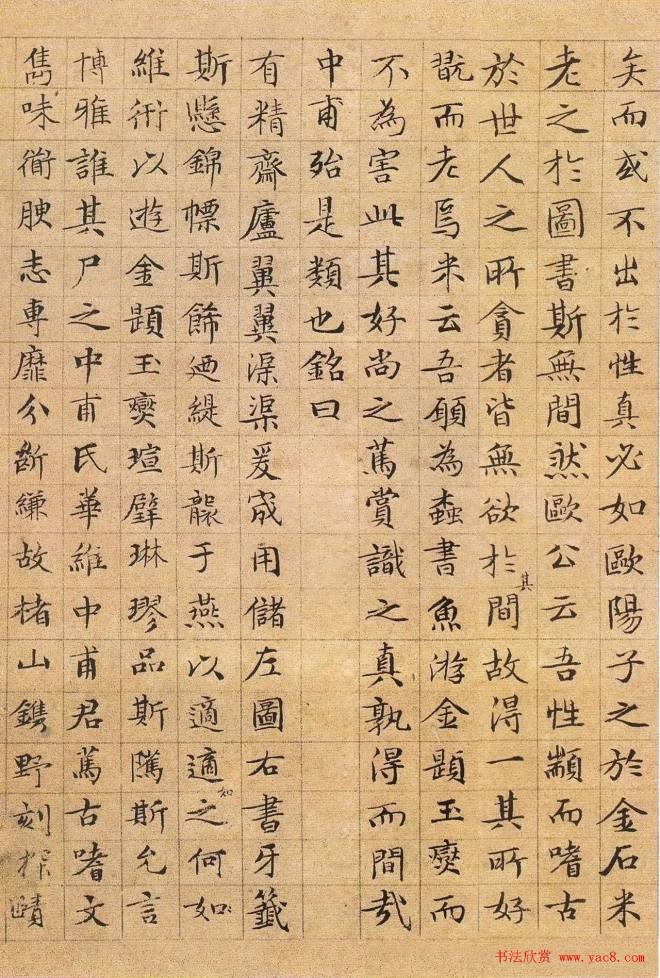 矣而或不出於性真必如歐陽子之於金石米
老之於圖書斯無間然歐公云吾性顓而嗜古
於世人之所貪者皆無欲於其間故得一其所好
翫而老焉米云吾願為蠹書魚游金題玉躞而
不為害此其好尚之篤賞識之真孰得而間哉
中甫殆是類也銘曰
有精齋廬翼翼渠渠爰宬用儲左圖右書牙籤
斯懸錦幖斯飾迺緹斯襲于燕以適適之如何如
維衎以遊金題玉躞瑄璧琳璆品斯隲斯允言
博雅誰其尸之中甫氏華維中甫君篤古嗜文
雋味衜腴志專靡分斷縑故楮山鐫野刻探賾
书法欣赏 www.yac8.com